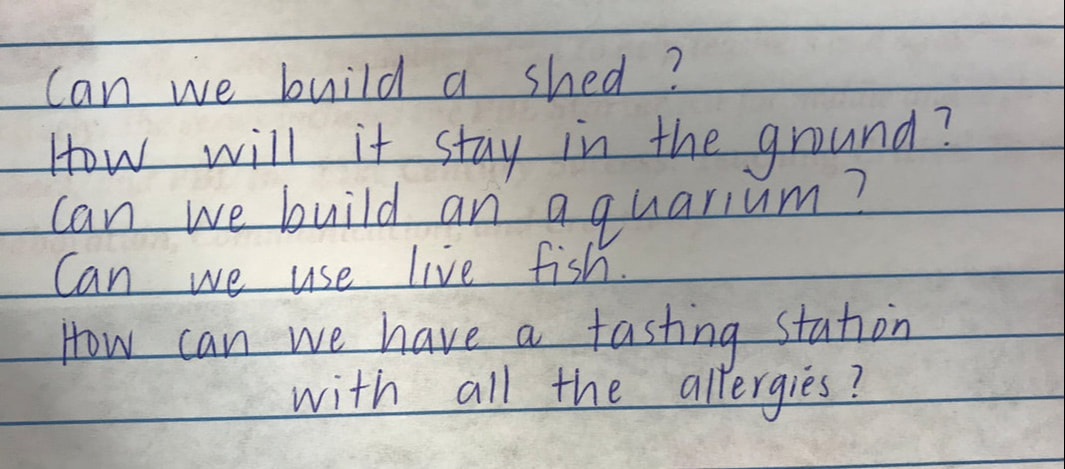 Can we build a shed?
How will it stay in the ground?
Can we build an aquarium?
Can we use live fish.
How can we have a tasting station
with all the allergies?